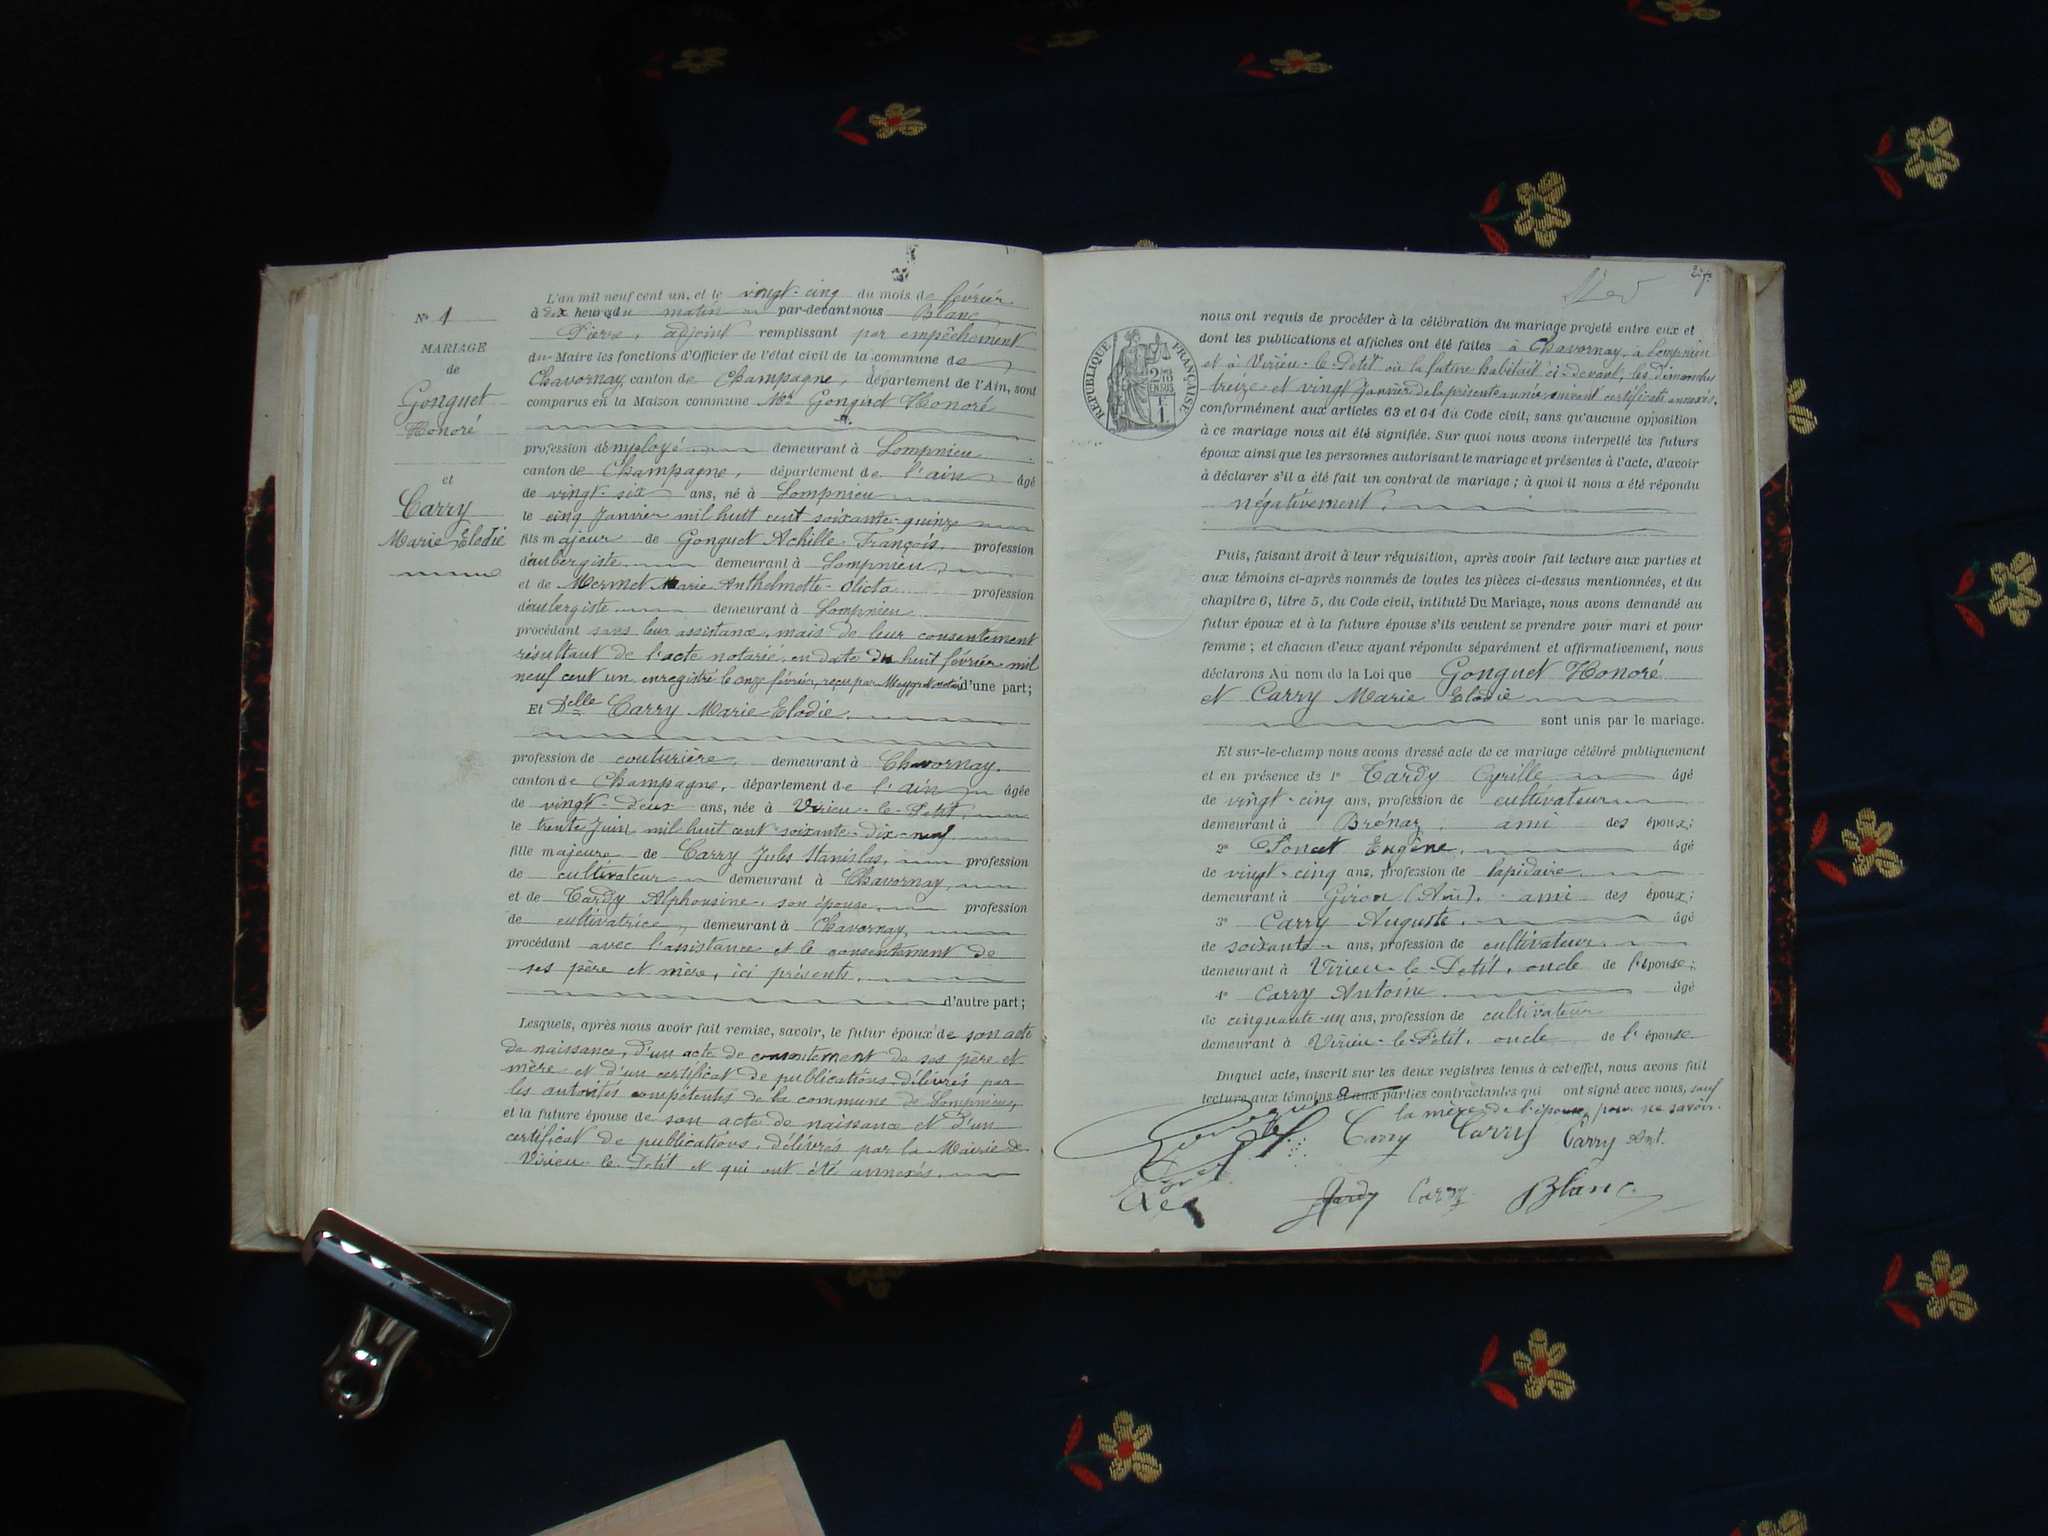 N° 1
MARIAGE
de
Gonguet
Honoré
et
Carry
Marie Elodie
L'an mil neuf cent un, et le vingt-cinq du mois de février
à dix heures du matin par-devant nous Blanc
Pierre, adjoint remplissant par empêchement
du Maire les fonctions d'Officier de l'état civil de la commune de
Chavornay, canton de Champagne, département de l'Ain, sont
comparus en la Maison commune Mr Gonguet Honoré
profession d'employé demeurant à Lompnieu
canton de Champagne, département de l'ain âgé
de vingt-six ans, né à Lompnieu
le cinq Janvier mil huit cent soixante-quinze
fils majeur de Gonguet Achille François, profession
d'aubergiste demeurant à Lompnieu,
et de Mermet Marie Anthelmette profession
d'aubergiste demeurant à Lompnieu
procédant sans leur assistance, mais de leur consentement
résultant de l'acte notarié en date du huit février mil
neuf cent un enregistré le onze février, reçu par d'une part;
Et Delle Carry Marie Elodie,
profession de couturière, demeurant à Chavornay,
canton de Champagne, département de l'ain âgée
de vingt-deux ans, née à Virieu-le-Petit,
le trente Juin mil huit cent soixante-dix-neuf
fille majeure de Carry Jules Stanislas, profession
de cultivateur demeurant à Chavornay,
et de Tardy Alphonsine, son épouse, profession
de cultivatrice, demeurant à Chavornay,
procédant avec l'assistance et le consentement de
ses père et mère, ici présents.
d'autre part;
Lesquels, après nous avoir fait remise, savoir, le futur époux de son acte
de naissance, d'un acte de consentement de ses père et
mère et d'un certificat de publications délivrés par
les autorités compétentes de la commune de Lompnieu,
et la future épouse de son acte de naissance et d'un
certificat de publications, délivrés par la Mairie de
Virieu-le-Petit et qui ont été annexés.
nous ont requis de procéder à la célébration du mariage projeté entre eux et
dont les publications et affiches ont été faites à Chavornay, à Lompnieu
et à Virieu-le-Petit où la future habitait ci-devant, les Dimanches
treize et vingt Janvier de la présente année, suivant certificats annexés.
RÉPUBLIQUE FRANÇAISE
conformément aux articles 63 et 64 du Code civil, sans qu'aucune opposition
à ce mariage nous ait été signifiée. Sur quoi nous avons interpellé les futurs
époux ainsi que les personnes autorisant le mariage et présentes à l'acte, d'avoir
à déclarer s'il a été fait un contrat de mariage; à quoi il nous a été répondu
négativement.
Puis, faisant droit à leur réquisition, après avoir fait lecture aux parties et
aux témoins ci-après nommés de toutes les pièces ci-dessus mentionnées, et du
chapitre 6, titre 5, du Code civil, intitulé Du Mariage, nous avons demandé au
futur époux et à la future épouse s'ils veulent se prendre pour mari et pour
femme; et chacun d'eux ayant répondu séparément et affirmativement, nous
déclarons Au nom de la Loi que Gonguet Honoré
et Carry Marie Elodie
sont unis par le mariage.
Et sur-le-champ nous avons dressé acte de ce mariage célébré publiquement
et en présence de 1° Tardy Cyrille âgé
de vingt-cinq ans, profession de cultivateur
demeurant à Brénaz, ami des époux;
2° Poncet Eugène, âgé
de vingt-cinq ans, profession de lapidaire
demeurant à Giron (Ain), ami des époux;
3° Carry Auguste, âgé
de soixante ans, profession de cultivateur,
demeurant à Virieu-le-Petit, oncle de l'épouse;
4° Carry Antoine âgé
de cinquante-un ans, profession de cultivateur
demeurant à Virieu-le-Petit, oncle de l'épouse
Duquel acte, inscrit sur les deux registres tenus à cet effet, nous avons fait
lecture aux témoins et aux parties contractantes qui ont signé avec nous, sauf
la mère de l'épouse, pour ne savoir.
Carry Carry Carry Ant.
Tardy Carry Blanc